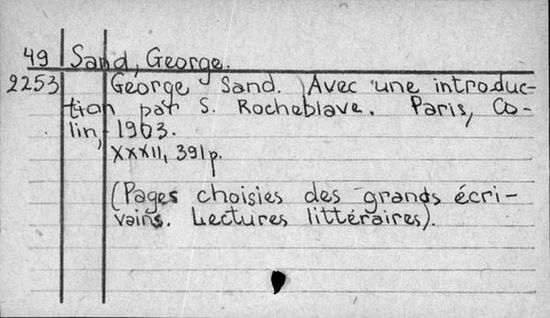 49 Sand, George.
2253 George Sand. Avec une introduc-
tion par S. Rocheblave. Paris, Co-
lin, 1903.
XXXII, 391p.
(Pages choisies des grands écri-
vains. Lectures littéraires).